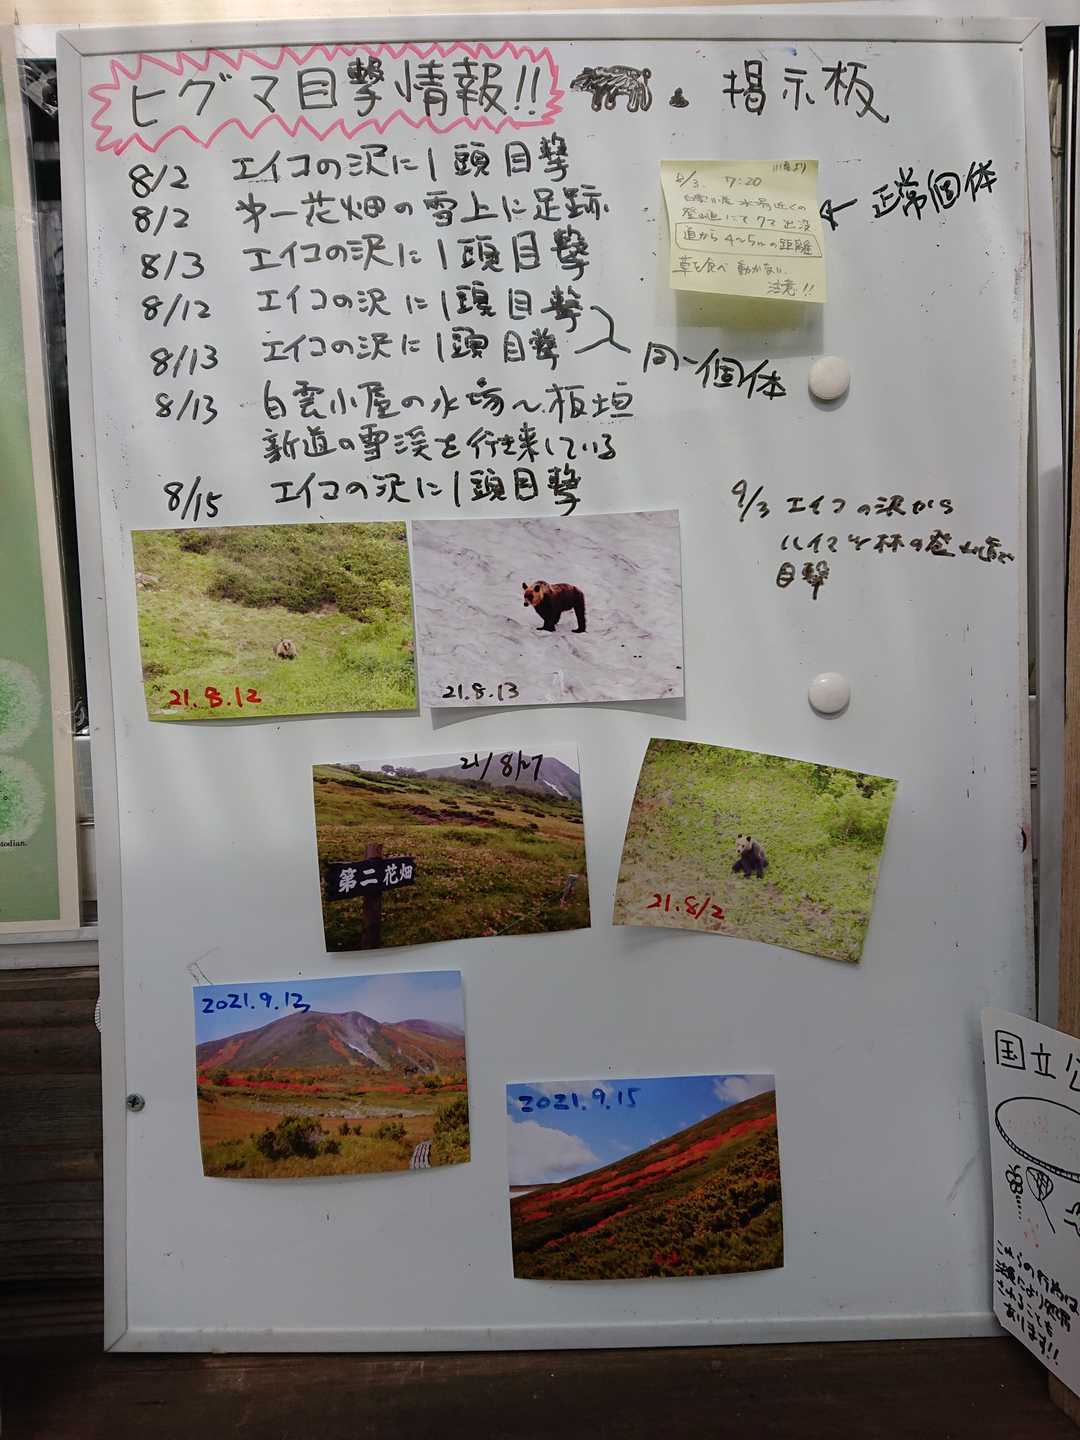 ヒグマ目撃情報!! 掲示板
8/2 エイコの沢に1頭目撃
8/2 オ一花畑の雪上に足跡
8/3 エイコの沢に1頭目撃
8/12 エイコの沢に1頭目撃
8/13 エイコの沢に1頭目撃
同一個体
8/13 白雲小屋の水場〜板垣
新道の雪渓を行き来している
8/15 エイコの沢に1頭目撃
より
8/3. 7:20
白雲小屋 水場近くの
登山道にてクマ出没
道から4〜5mの距離
草を食べ 動かない.
注意!!
← 正常個体
9/3 エイコの沢から
ハイマツ林の登山道で
目撃
21.8.12
21.8.13
21/8/27
第二花畑
21.8/2
2021.9.12
2021.9.15
国立公
これらの行為は
法律により
されることも
あります!!